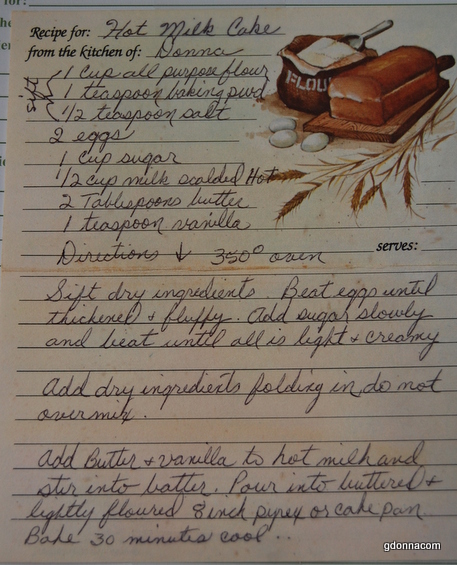 Recipe for: Hot Milk Cake
from the kitchen of: Donna
sift
1 cup all purpose flour
1 teaspoon baking powd
1/2 teaspoon salt
2 eggs
1 cup sugar
1/2 cup milk scalded Hot
2 Tablespoons butter
1 teaspoon vanilla
FLOU
serves:
Directions ↓ 350° oven
Sift dry ingredients. Beat eggs until
thickened + fluffy. Add sugar slowly
and beat until all is light + creamy
Add dry ingredients folding in, do not
overmix.
Add Butter + vanilla to hot milk and
stir into batter. Pour into buttered +
lightly floured 8 inch pyrex or cake pan.
Bake 30 minutes cool..
gdonnacom